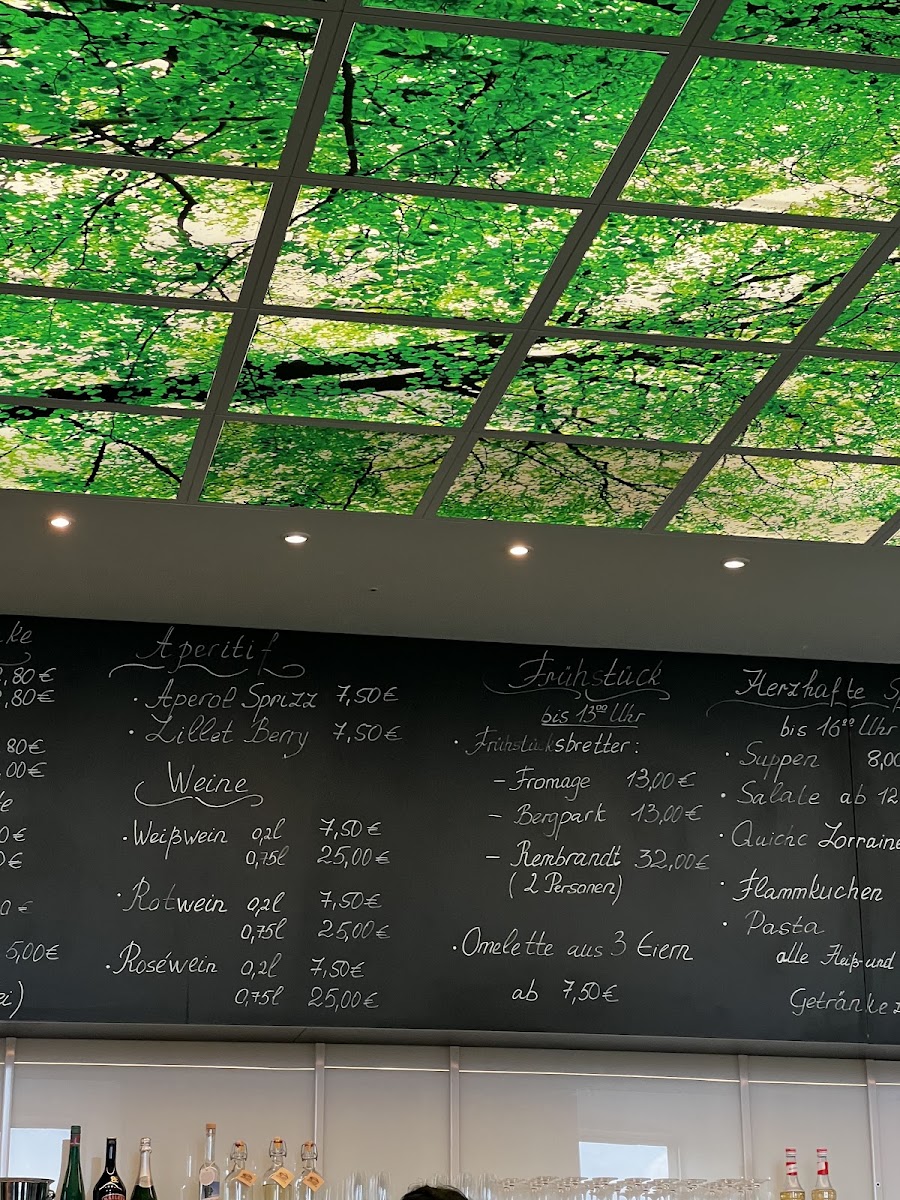 ,80€
,80€
80€
,00€
0€
5,00€
Aperitif
· Aperol Sprizz 7,50€
· Lillet Berry 7,50€
Weine
· Weißwein 0,2l 7,50€
0,75l 25,00€
· Rotwein 0,2l 7,50€
0,75l 25,00€
· Roséwein 0,2l 7,50€
0,75l 25,00€
Frühstück
bis 13⁰⁰ Uhr
· Frühstücksbretter:
– Fromage 13,00€
– Bergpark 13,00€
– Rembrandt 32,00€
(2 Personen)
· Omelette aus 3 Eiern
ab 7,50€
Herzhafte
bis 16⁰⁰ Uhr
· Suppen 8,00
· Salate ab 12
· Quiche Lorraine
· Flammkuchen
· Pasta
alle Fleiß-und
Getränke